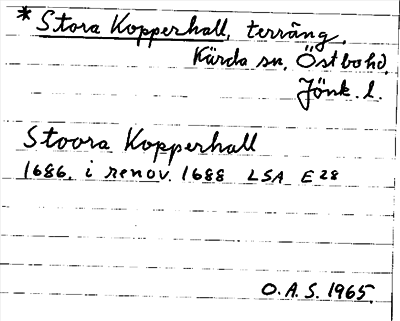 * Stora Kopperhall, terräng,
Kärda sn, Östbo hd,
Jönk. l.
Stoora Kopperhall
1686. i renov. 1688 LSA E 28
O.A.S. 1965.